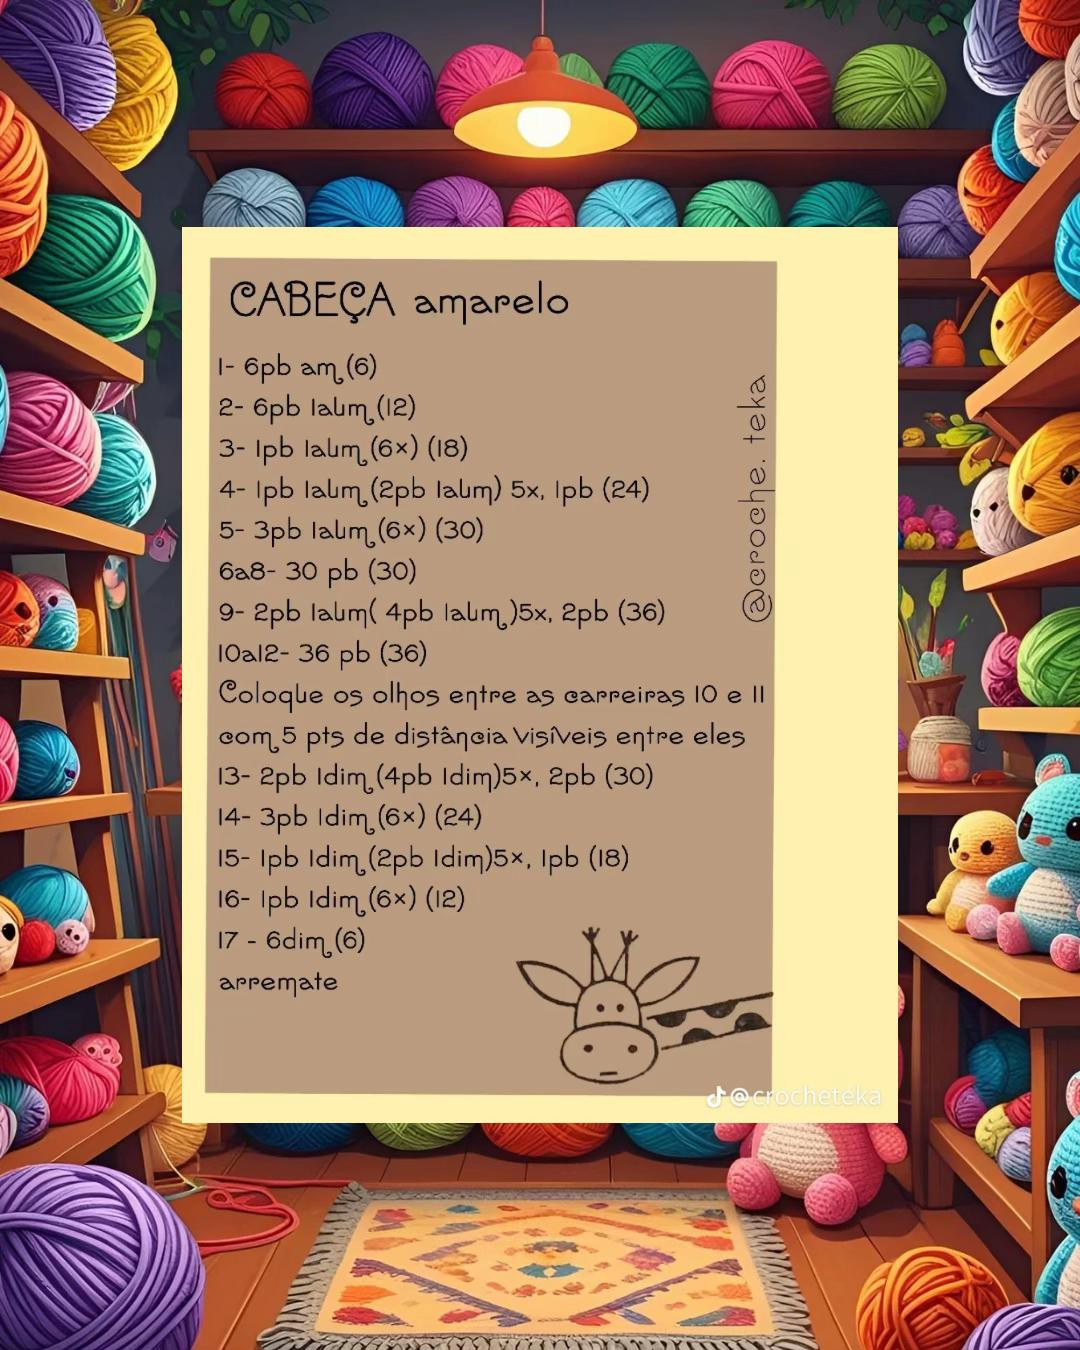 CABEÇA amarelo
1- 6pb am (6)
2- 6pb 1aum (12)
3- 1pb 1aum (6×) (18)
4- 1pb 1aum (2pb 1aum) 5x, 1pb (24)
5- 3pb 1aum (6×) (30)
6a8- 30 pb (30)
9- 2pb 1aum( 4pb 1aum )5x, 2pb (36)
10a12- 36 pb (36)
Coloque os olhos entre as carreiras 10 e 11
com 5 pts de distância visíveis entre eles
13- 2pb 1dim (4pb 1dim)5×, 2pb (30)
14- 3pb 1dim (6×) (24)
15- 1pb 1dim (2pb 1dim)5×, 1pb (18)
16- 1pb 1dim (6×) (12)
17 - 6dim (6)
arremate
@croche. teka
@crocheteka